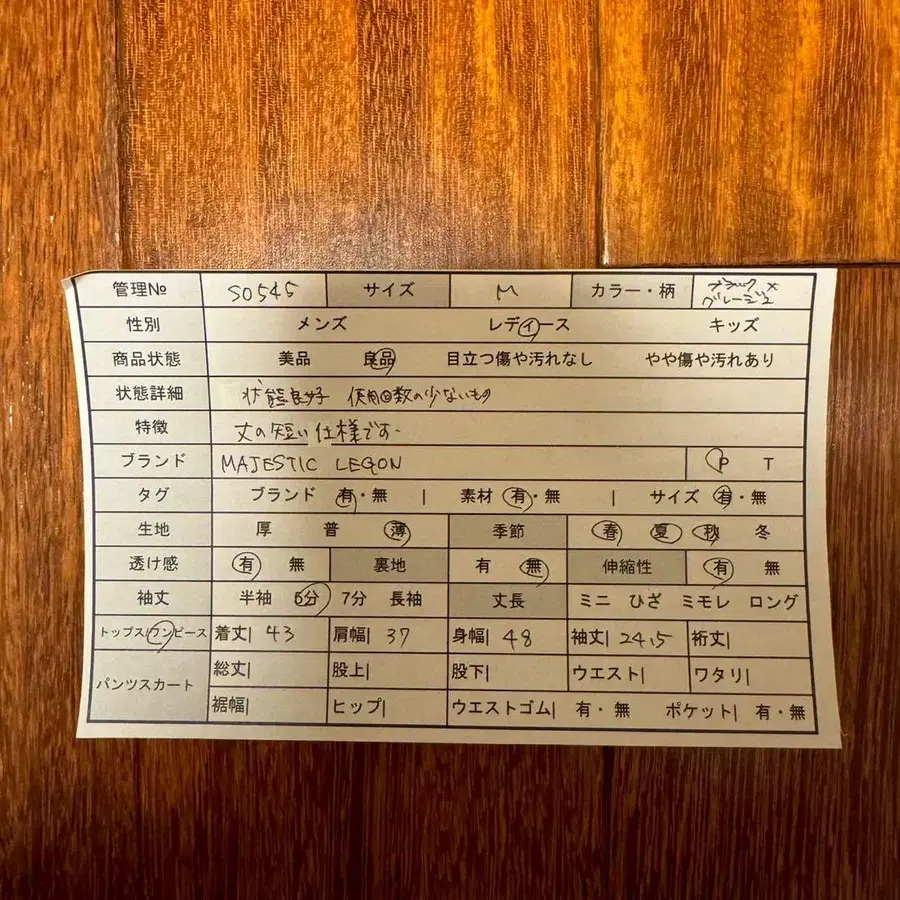 管理№ S0545 サイズ M カラー・柄 ブラック×
グレージュ
性別 メンズ レディース キッズ
商品状態 美品 良品 目立つ傷や汚れなし やや傷や汚れあり
状態詳細 状態良好 使用回数の少ないもの
特徴 丈の短い仕様です。
ブランド MAJESTIC LEGON P T
タグ ブランド 有・無 | 素材 有・無 | サイズ 有・無
生地 厚 普 薄 季節 春 夏 秋 冬
透け感 有 無 裏地 有 無 伸縮性 有 無
袖丈 半袖 5分 7分 長袖 丈長 ミニ ひざ ミモレ ロング
トップス/ワンピース 着丈| 43 肩幅| 37 身幅| 48 袖丈| 24.5 裄丈|
パンツスカート 総丈| 股上| 股下| ウエスト| ワタリ|
裾幅| ヒップ| ウエストゴム| 有・無 ポケット| 有・無